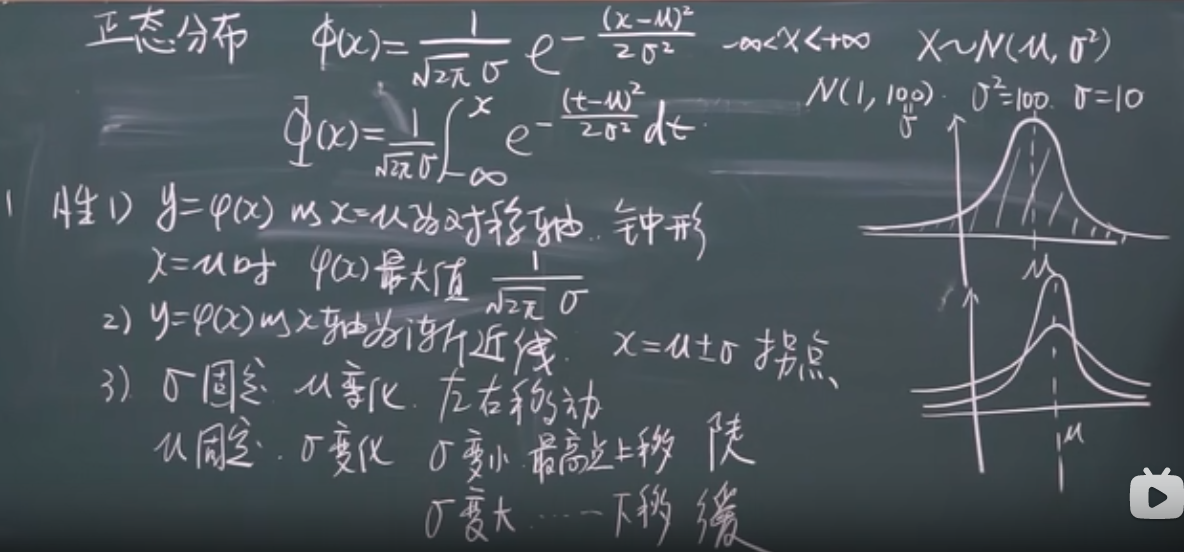 正态分布 φ(x)=1/(√2π σ) e^-(x-μ)²/2σ² -∞<x<+∞ X~N(μ, σ²)
N(1, 100). σ²=100. σ=10
σ²
Φ(x)=1/(√2π σ)∫_-∞^x e^-(t-μ)²/2σ² dt.
性1) y=φ(x) 以x=μ为对称轴.. 钟形
x=μ时 φ(x)最大值 1/(√2π σ)
μ
2) y=φ(x)以x轴为渐近线. x=μ±σ 拐点
3) σ固定 μ变化. 左右移动
μ固定. σ变化 σ变小 最高点上移 陡
μ
σ变大 ……下移 缓